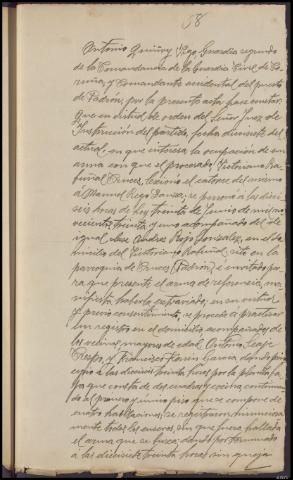 58
Antonio Quiñoy Vigo, Guardia segundo
de la Comandancia de la Guardia Civil de Co-
ruña, y Comandante accidental del puesto
de Padrón, por la presente acta hace constar:
Que en virtud de orden del Señor Juez de
Instrucción del partido, fecha diecisiete del
actual, en que interesa la ocupación de un
arma con que el procesado Victoriano
lesionó el catorce del mismo
a Manuel Rejo se personó a las dieci-
seis horas de hoy treinta de Junio de mil no-
vecientos treinta y uno acompañado del de
igual clase Andres Rejo Gonzalez, en el do-
micilio del Victoriano sito en la
parroquia de Cruces (Padrón), e invitado pa-
ra que presente el arma de referencia, ma-
nifiesta haberla extraviado; en su virtud
y previo consentimiento, se procede a practicar
un registro en el domicilio acompañados de
los vecinos, mayores de edad, Antonio
Crespo, y Francisco García, dando prin-
cipio a las dieciseis treinta horas por la planta ba-
ja que consta de dos cuadras y cocina, continuan-
do al primero y único piso que se compone de
cuatro habitaciones, se registraron minuciosa-
mente todos los enseres, sin que fuera hallada
el arma que se busca; dando por terminado
a las diecisiete treinta horas sin queja